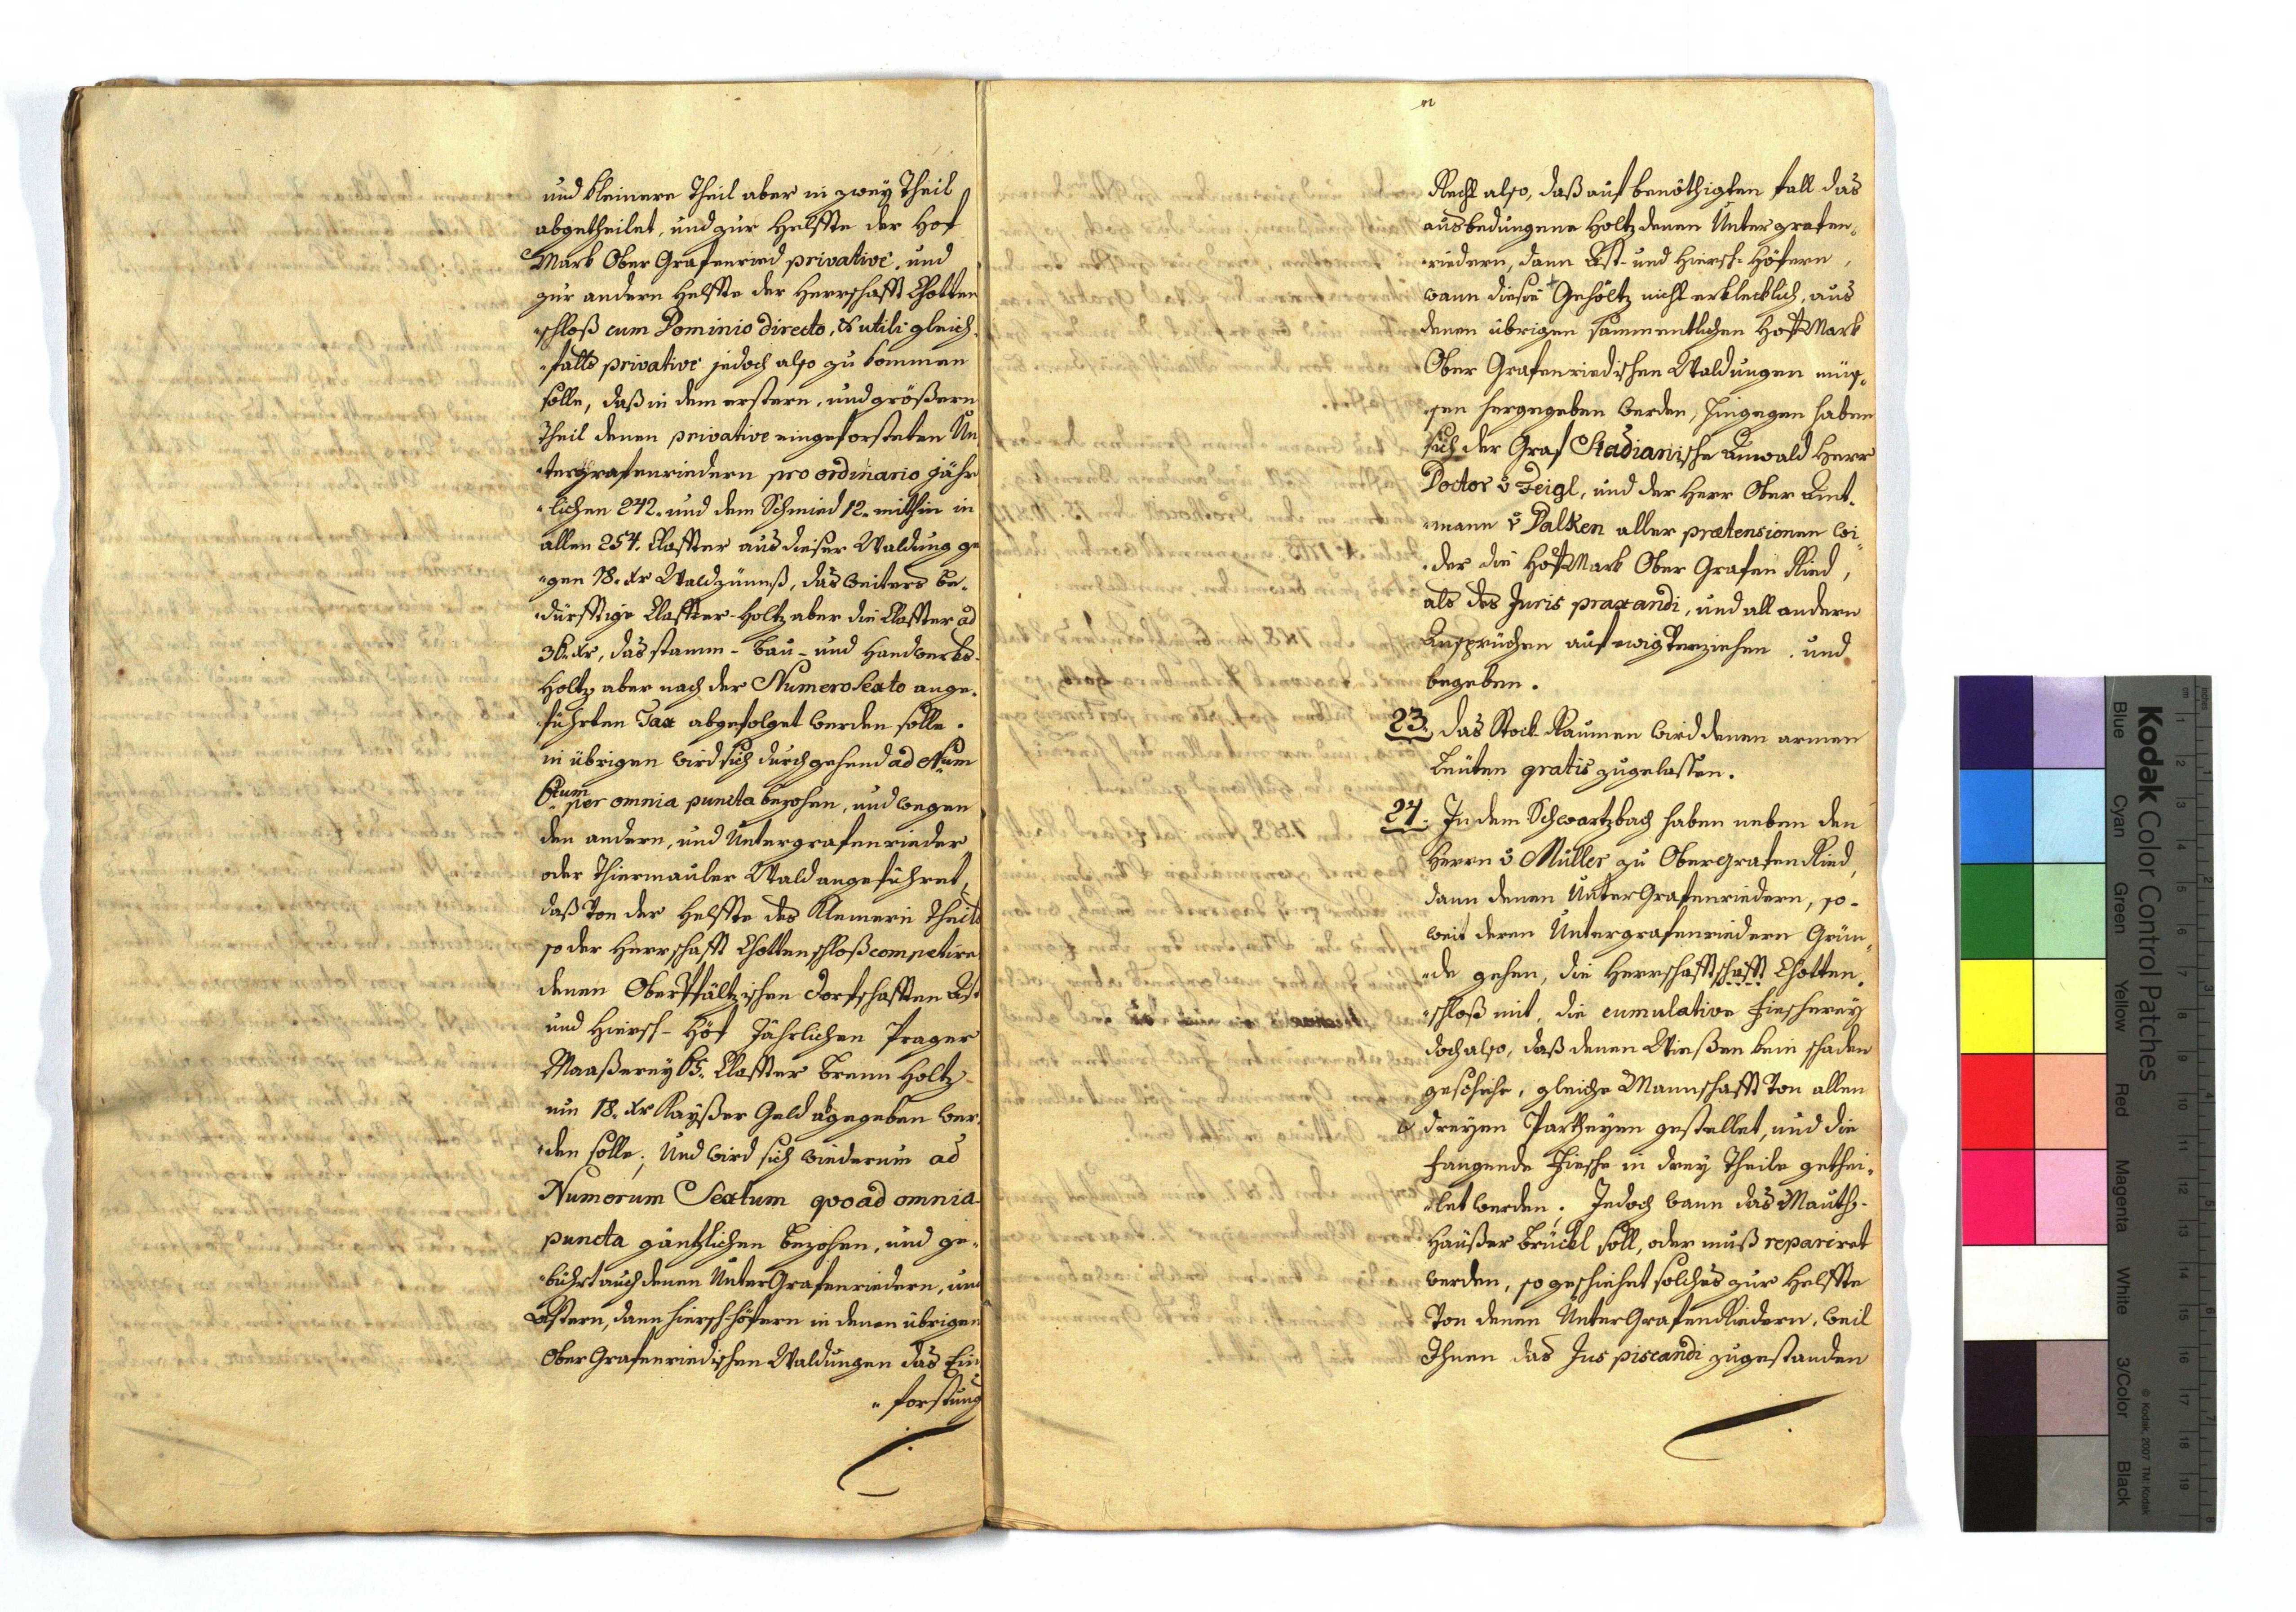 und kleinere Theil aber in zwey Theil
abgetheilet, und zur Helffte der Hof
Mark Ober Grafenried privative, und
zur andern Helffte der Herrschafft Chotten
schloß cum Dominio directo, & utili gleich-
falls privative jedoch also zu kommen
solle, daß in dem erstern, und größern
Theil denen privative eingeforsteten Un
tergrafenriedern pro ordinario jähr
lichen 242. und dem Schmied 12. mithin in
allen 254. Claffter aus dieser Waldung ge
gen 18. xr Waldzünnß, das weiters be-
dürfftige Claffter-Holtz aber die Claffter ad
36. xr, das stamm- bau- und Handwerks-
Holtz aber nach der Numero Sexto ange-
führten Tax abgefolget werden solle.
in übrigen wird sich durchgehend ad Num
6tum per omnia puncta bezohen, und wegen
den andern, und Untergrafenrieder
oder Thiermauler Wald angeführet,
daß von der Helffte des Kleinern Theils
so der Herrschafft Chottenschloß competire
denen Oberpfältzischen Dorfschafften Ast
und Hiersch-Höf Jährlichen Prager
Maaßerey 65. Claffter Brenn Holtz
um 18. xr Kayßer Geld abgegeben wer-
den solle; Und wird sich wiederum ad
Numerum Sextum quoad omnia
puncta gäntzlichen bezohen, und ge-
bührt auch denen UnterGrafenriedern, und
Astern, dann Hiersch-Höfern in denen übrigen
Ober Grafenriedischen Waldungen das Ein
forstung
Recht also, daß auf benöthigten fall das
ausbedungene Holtz denen Untergrafen-
riedern, dann Ast- und Hiersch-Höfern,
wann diese Gehöltz nicht erklecklich, aus
denen übrigen sammentlichen HofMark
Ober Grafenriedischen Waldungen müs-
sen hergegeben werden, hingegen haben
sich der Graf Stadianische Anwald Herr
Doctor v Feigl, und der Herr Ober Amt-
mann v Palken aller prætensionen wi-
der die HofMark Ober Grafen Ried,
als des Juris praxandi, und all andern
Ansprüchen auf ewig verziehen, und
begeben.
23. das Stock Raumen wird denen armen
Leüten gratis zugelassen.
24. In dem Schwartzbach haben neben den
Herrn v Müller zu ObergrafenRied,
dann denen UnterGrafenriedern, so-
weit deren Untergrafenriedern Grün-
de gehen, die Herrschafftschafft Chotten-
schloß mit, die cumulative Fiescherey
doch also, daß denen Wießen kein schaden
geschehe, gleiche Mannschafft von allen
dreyen Partheyen gestellet, und die
fangende Fiesche in drey Theile gethei-
let werden; Jedoch wann das Mauth-
Haüßer Brückl soll, oder muß repariret
werden, so geschiehet solches zur Helffte
von denen UnterGrafenRiedern, weil
Ihnen das Jus piscandi zugestanden
Kodak Color Control Patches
Blue Cyan Green Yellow Red Magenta White 3/Color Black
© Kodak, 2007 TM: Kodak